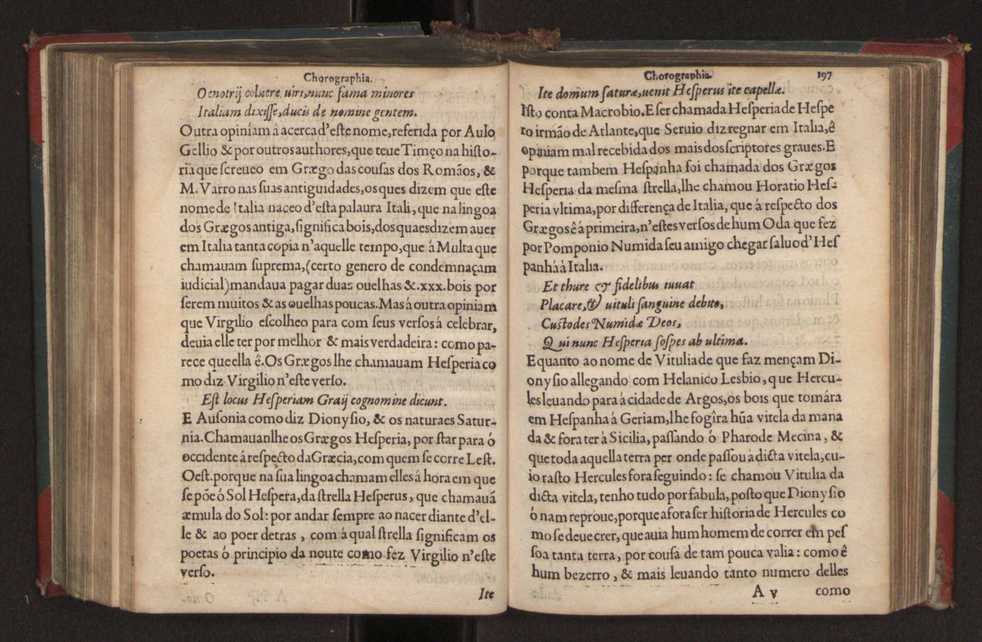 Chorographia.
Oenotrij coluere viri, nunc fama minores
Italiam dixisse, ducis de nomine gentem.
Outra opiniam á acerca d'este nome, referida por Aulo
Gellio & por outros authores, que teue Timęo na histo-
ria que screueo em Grægo das cousas dos Romãos, &
M. Varro nas suas antiguidades, os ques dizem que este
nome de Italia naceo d'esta palaura Itali, que na lingoa
dos Grægos antiga, significa bois, dos quaes dizem auer
em Italia tanta copia n'aquelle tempo, que á Multa que
chamauam suprema, (certo genero de condemnaçam
iudicial) mandaua pagar duas ouelhas &.xxx. bois por
serem muitos & as ouelhas poucas. Mas á outra opiniam
que Virgilio escolheo para com seus versos á celebrar,
deuia elle ter por melhor & mais verdadeira: como pa-
rece que ella ê. Os Grægos lhe chamauam Hesperia co
mo diz Virgilio n'este verso.
Est locus Hesperiam Graij cognomine dicunt.
E Ausonia como diz Dionysio, & os naturaes Satur-
nia. Chamauanlhe os Grægos Hesperia, por star para ó
occidente á respecto da Græcia, com quem se corre Lest.
Oest. porque na sua lingoa chamam elles á hora em que
se põe ó Sol Hespera, da strella Hesperus, que chamauã
æmula do Sol: por andar sempre ao nacer diante d'el-
le & ao poer detras, com á qual strella significam os
poetas ó principio da noute como fez Virgilio n'este
verso.
Ite
Chorographia.
197
Ite domum saturæ, uenit Hesperus ite capellæ.
Isto conta Macrobio. E ser chamada Hesperia de Hespe
ro irmão de Atlante, que Seruio diz regnar em Italia, ê
opiniam mal recebida dos mais dos scriptores graues. E
porque tambem Hespanha foi chamada dos Grægos
Hesperia da mesma strella, lhe chamou Horatio Hes-
peria vltima, por differença de Italia, que á respecto dos
Grægos ê á primeira, n'estes versos de hum Oda que fez
por Pomponio Numida seu amigo chegar saluo d'Hes
panhá á Italia.
Et thure & fidelibus iuuat
Placare, & uituli sanguine debito,
Custodes Numidæ Deos,
Qui nunc Hesperia sospes ab ultima.
E quanto ao nome de Vitulia de que faz mençam Di-
onysio allegando com Helanico Lesbio, que Hercu-
les leuando para á cidade de Argos, os bois que tomára
em Hespanha á Geriam, lhe fogîra hũa vitela da mana
da & fora ter à Sicilia, passando ó Pharo de Mecina, &
que toda aquella terra per onde passou á dicta vitela, cu-
io rasto Hercules fora seguindo: se chamou Vitulia da
dicta vitela, tenho tudo por fabula, posto que Dionysio
ó nam reproue, porque afora ser historia de Hercules co
mo se deue crer, que auia hum homem de correr em pes
soa tanta terra, por cousa de tam pouca valia: como ê
hum bezerro, & mais leuando tanto numero delles
A v
como